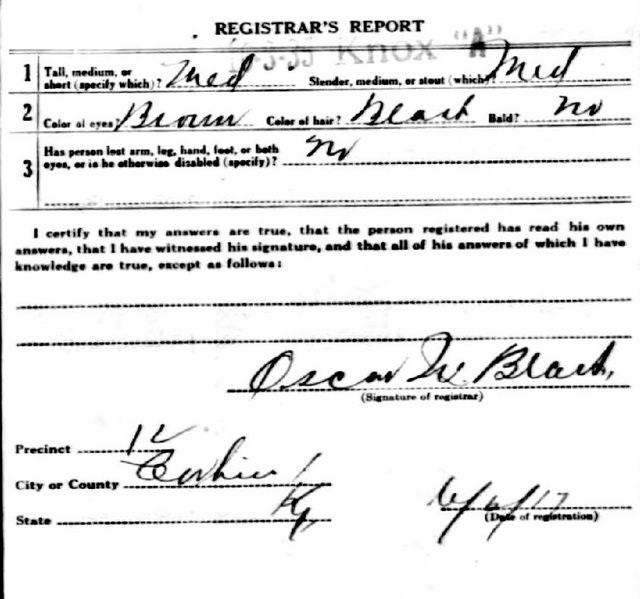 REGISTRAR'S REPORT
Knox "A"
1 Tall, medium, or short (specify which)? Med Slender, medium, or stout (which)? Med
2 Color of eyes? Brown Color of hair? Black Bald? No
3 Has person lost arm, leg, hand, foot, or both eyes, or is he otherwise disabled (specify)? No
I certify that my answers are true, that the person registered has read his own
answers, that I have witnessed his signature, and that all of his answers of which I have
knowledge are true, except as follows:
Oscar W. Black,
(Signature of registrar)
Precinct 12
City or County Corbin
State Ky,
6/6/17
(Date of registration)